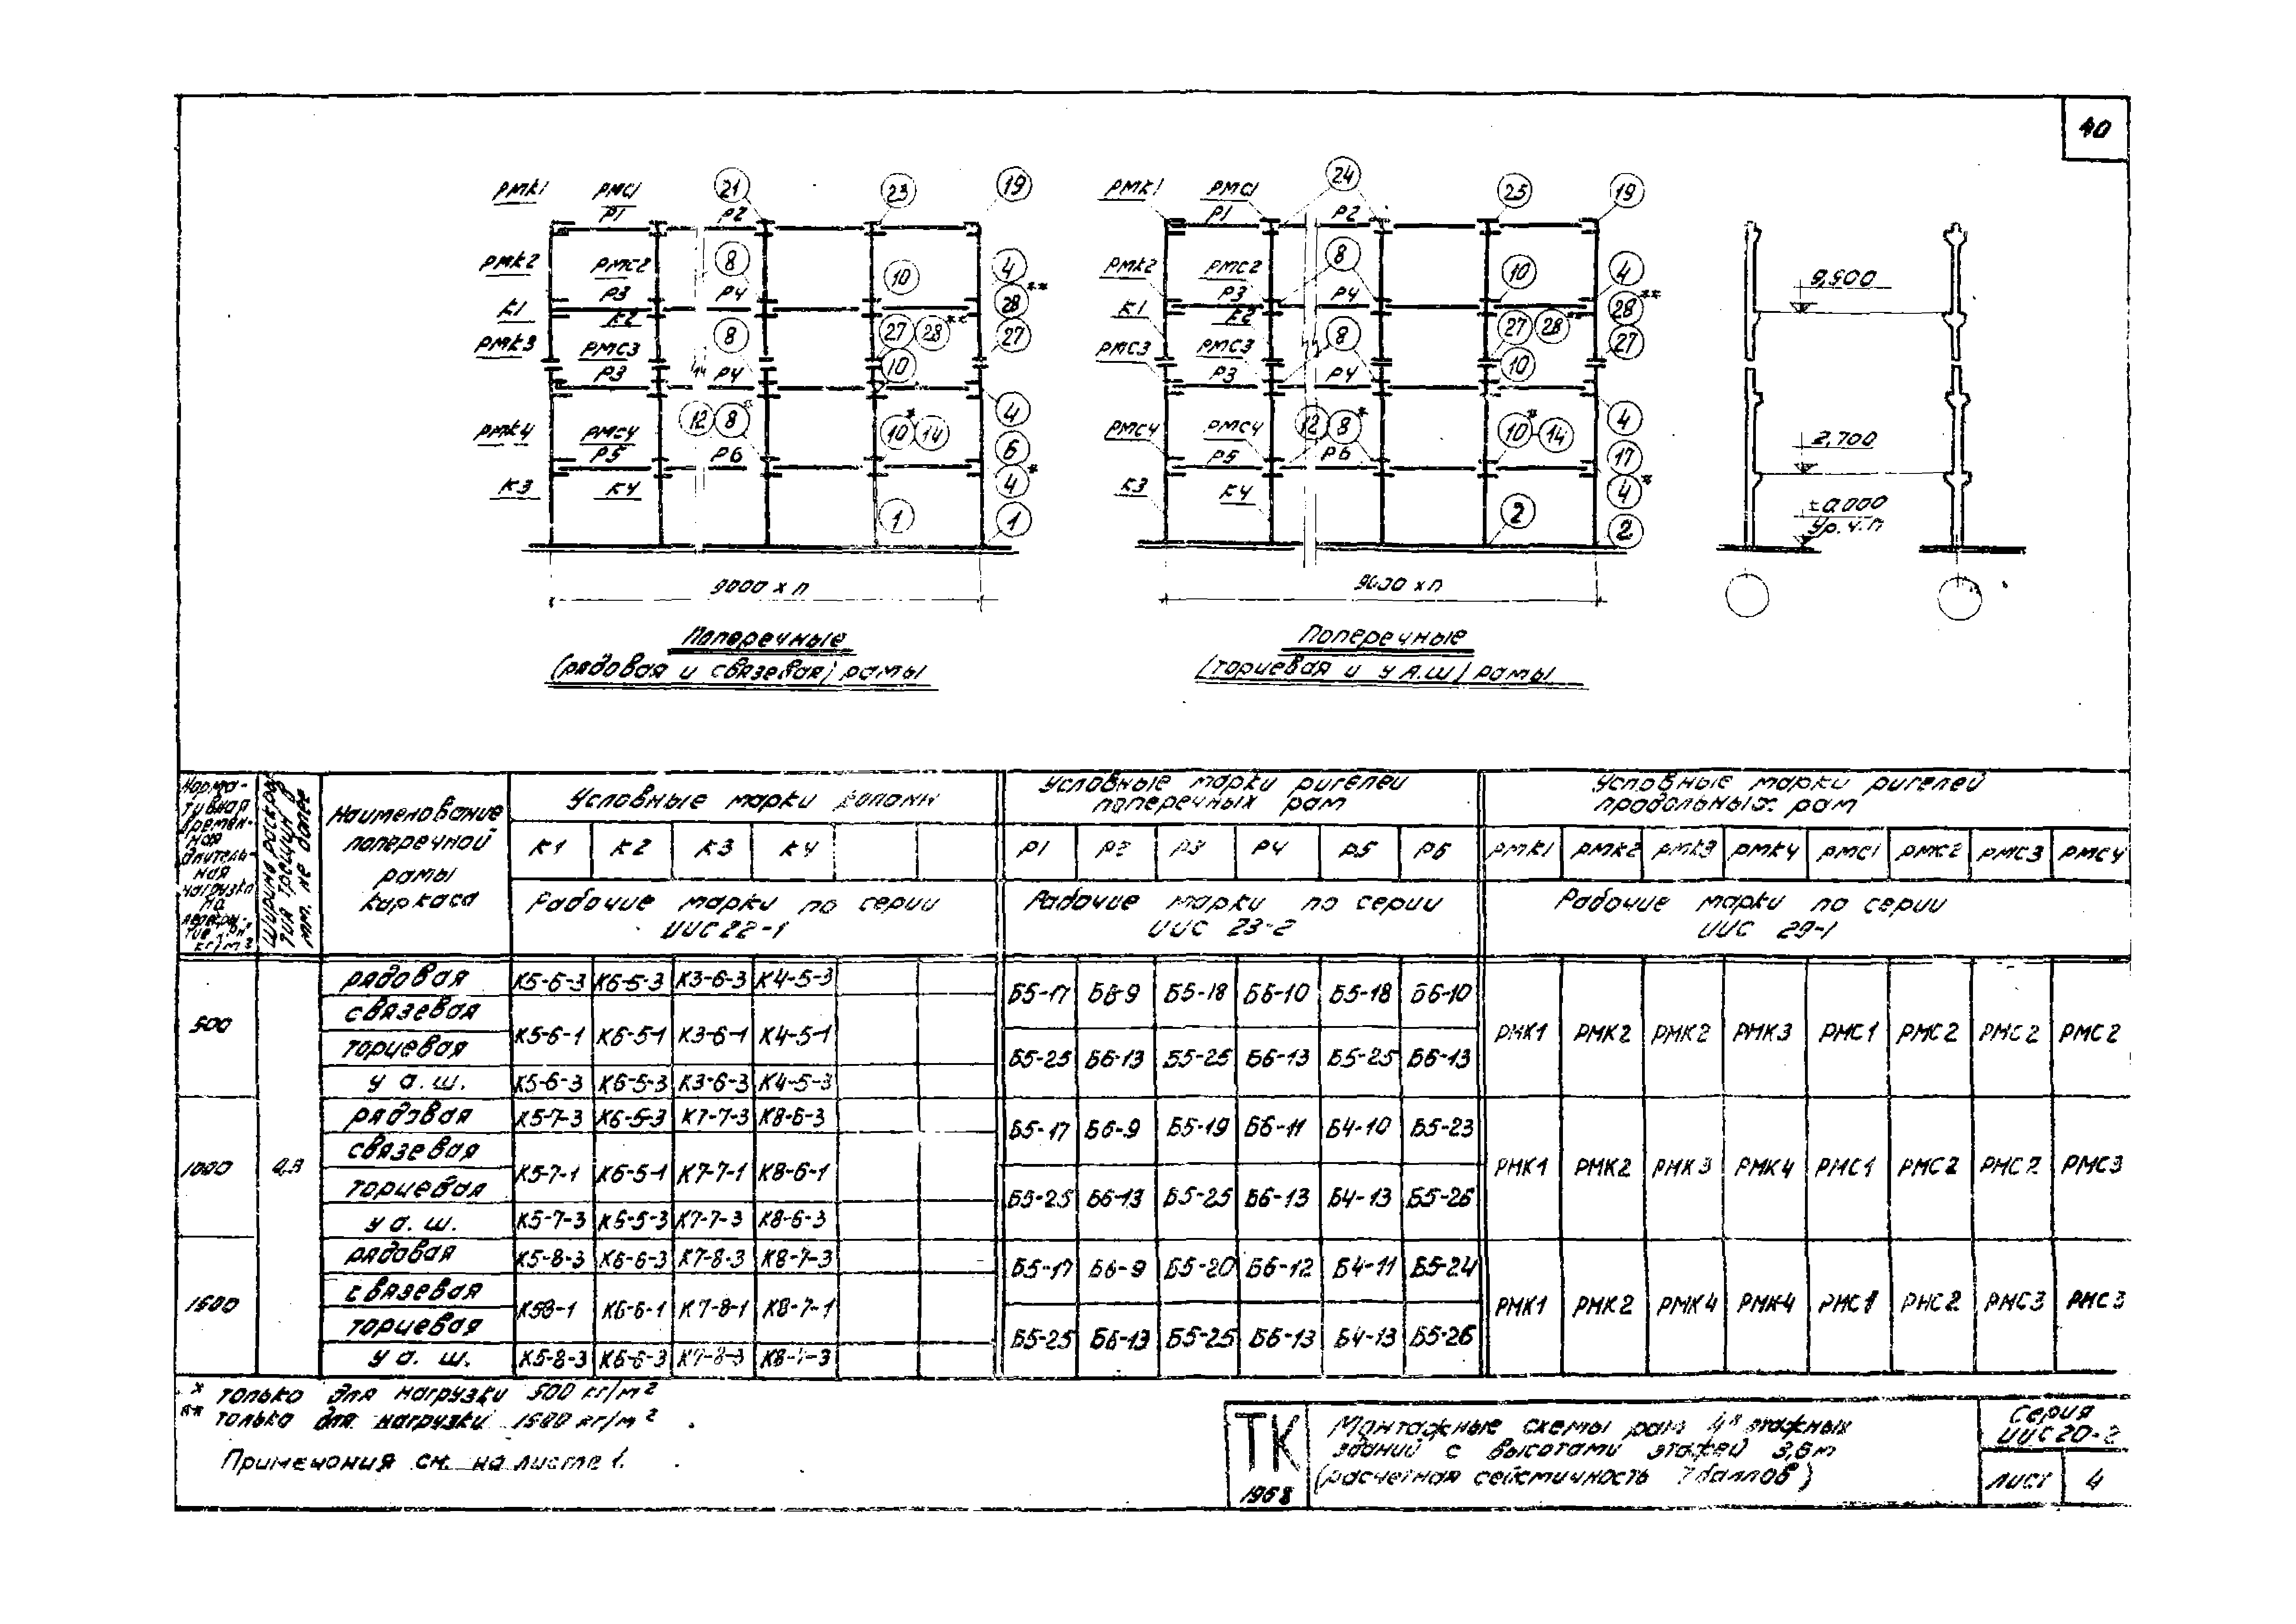 40
РМК1 РМС1 21 23 19
Р1 Р2
РМК2 РМС2 8 10 4
Р3 Р4 28**
К1 К2
РМК3 РМС3 8 27 28** 27
Р3 14 Р4 10
РМК4 РМС4 12 8* 10* 14 4
Р5 Р6 6
К3 К4 4*
1 1
9000 х п
Поперечные
(рядовая и связевая) рамы
РМК1 РМС1 24 25 19
Р1 Р2
РМК2 РМС2 8 10 4
Р3 Р4 28**
К1 К2
РМС3 РМС3 8 27 28** 27
Р3 Р4 10
РМС4 РМС4 12 8* 10* 14 4
Р5 Р6 17
К3 К4 4*
2 2
9000 х п
Поперечные
(торцевая и у А.Ш) рамы
9,900
2,700
±0.000
Ур.ч.п
Норма-
тивная
времен-
ная
длитель-
ная
нагрузка
на
кг/м²
Ширина раскры-
тия трещин в
мм. не более
Наименование
поперечной
рамы
каркаса
Условные марки колонн
К1 К2 К3 К4
Рабочие марки по серии
ИИС22-1
Условные марки ригелей
поперечных рам
Р1 Р2 Р3 Р4 Р5 Р6
Рабочие марки по серии
ИИС 23-2
Условные марки ригелей
продольных рам
РМК1 РМК2 РМК3 РМК4 РМС1 РМС2 РМС3 РМС4
Рабочие марки по серии
ИИС 29-1
500
рядовая К5-6-3 К6-5-3 К3-6-3 К4-5-3
связевая
Б5-17 Б6-9 Б5-18 Б6-10 Б5-18 Б6-10
К5-6-1 К6-5-1 К3-6-1 К4-5-1
РМК1 РМК2 РМК2 РМК3 РМС1 РМС2 РМС2 РМС2
торцевая
Б5-25 Б6-13 Б5-25 Б6-13 Б5-25 Б6-13
у а.ш. К5-6-3 К6-5-3 К3-6-3 К4-5-3
1000 0,3
рядовая К5-7-3 К6-5-3 К7-7-3 К8-6-3
связевая
Б5-17 Б6-9 Б5-19 Б6-11 Б4-10 Б5-23
К5-7-1 К6-5-1 К7-7-1 К8-6-1
РМК1 РМК2 РМК3 РМК4 РМС1 РМС2 РМС2 РМС3
торцевая
Б5-25 Б6-13 Б5-25 Б6-13 Б4-13 Б5-26
у а. ш. К5-7-3 К6-5-3 К7-7-3 К8-6-3
1500
рядовая К5-8-3 К6-6-3 К7-8-3 К8-7-3
связевая
Б5-17 Б6-9 Б5-20 Б6-12 Б4-11 Б5-24
К58-1 К6-6-1 К7-8-1 К8-7-1
РМК1 РМК2 РМК4 РМК4 РМС1 РМС2 РМС3 РМС3
торцевая
Б5-25 Б6-13 Б5-25 Б6-13 Б4-13 Б5-26
у а. ш. К5-8-3 К6-6-3 К7-8-3 К8-7-3
* только для нагрузки 500 кг/м²
** только для нагрузки 1500 кг/м².
Примечания см. на листе 1.
ТК
1968
Монтажные схемы рам 4х этажных
зданий с высотами этажей 3,6м
(расчетная сейсмичность 7 баллов)
Серия
ИИС20-2
лист 4